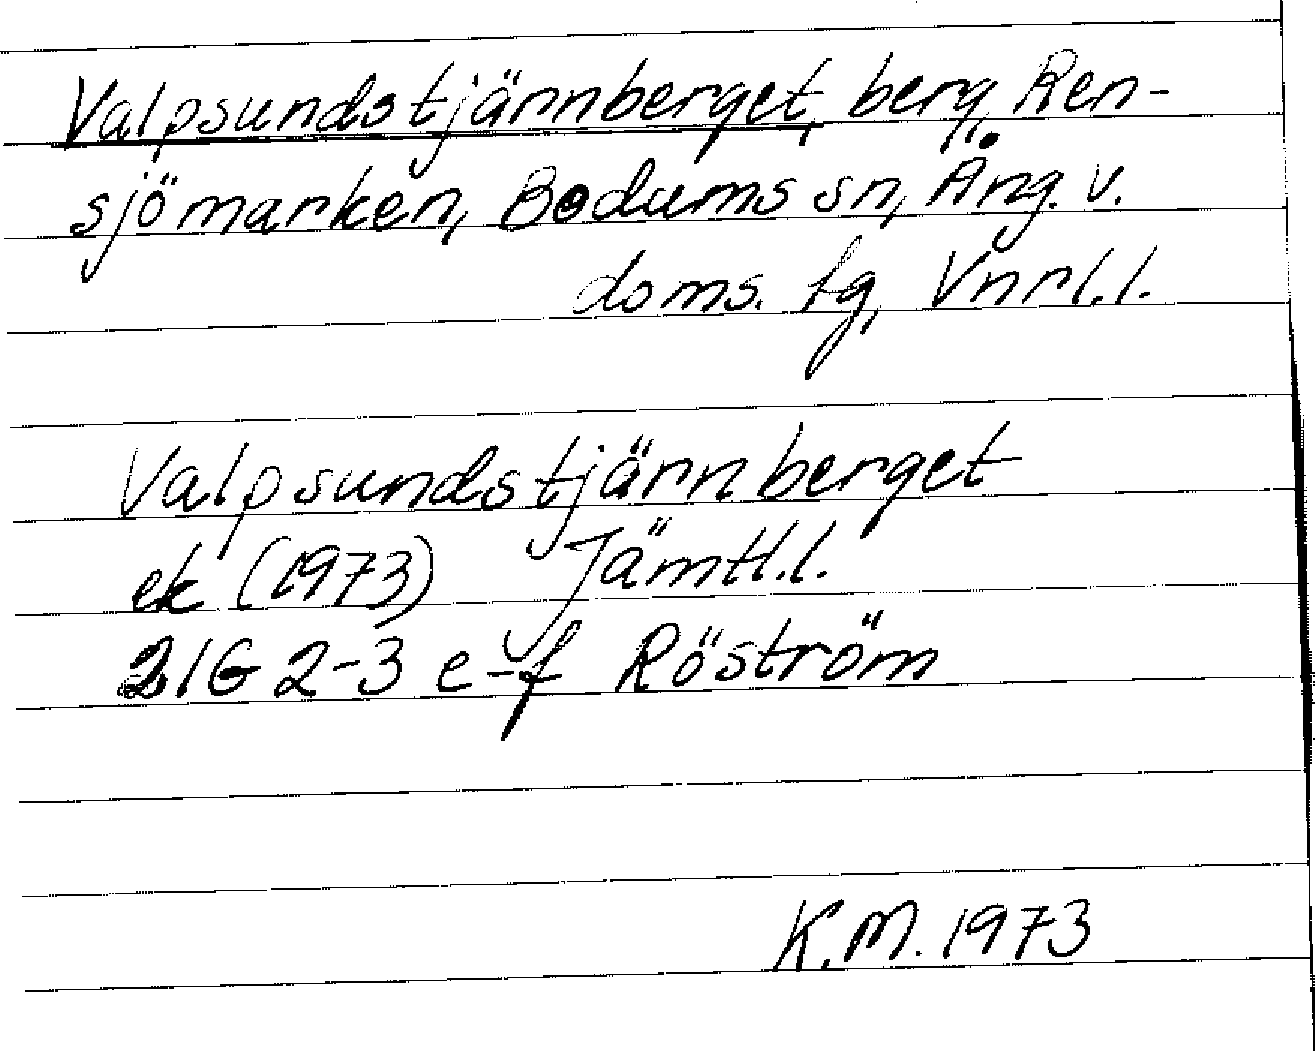 Valpsundstjärnberget, berg, Ren-
sjömarken, Bodums sn, Äng. v.
doms. lg, Vnrl. l.
Valpsundstjärnberget
ek (1973) Jämtl. l.
21G 2-3 e-f Röström
K.M. 1973